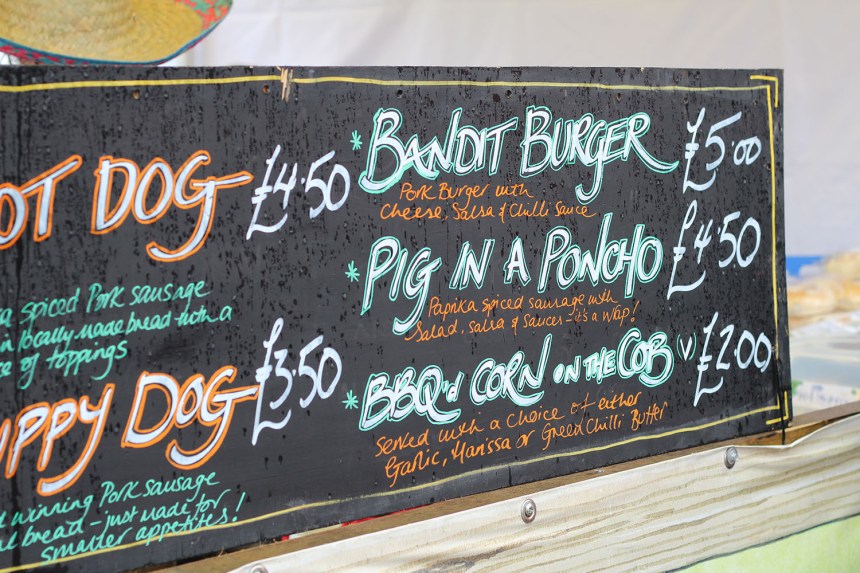 OT DOG £4.50
spiced Pork sausage
in locally made bread with a
of toppings
PPY DOG £3.50
winning Pork sausage
bread - just made for
smaller appetites!
* BANDIT BURGER £5.00
Pork Burger with
Cheese, Salsa & Chilli Sauce
* PIG IN A PONCHO £4.50
Paprika spiced sausage with
Salad, salsa & sauces - it's a wrap!
* BBQ'd CORN ON THE COB (V) £2.00
Served with a choice of either
Garlic, Harissa or Green Chilli Butter